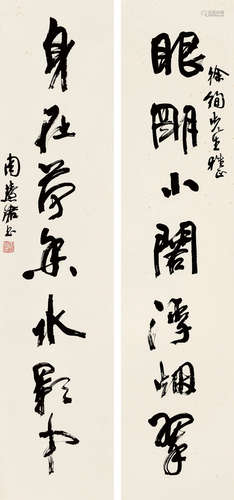 徐絢先生雅正
眼明小閣浮烟翠
身在荷香水影中
周慧珺书